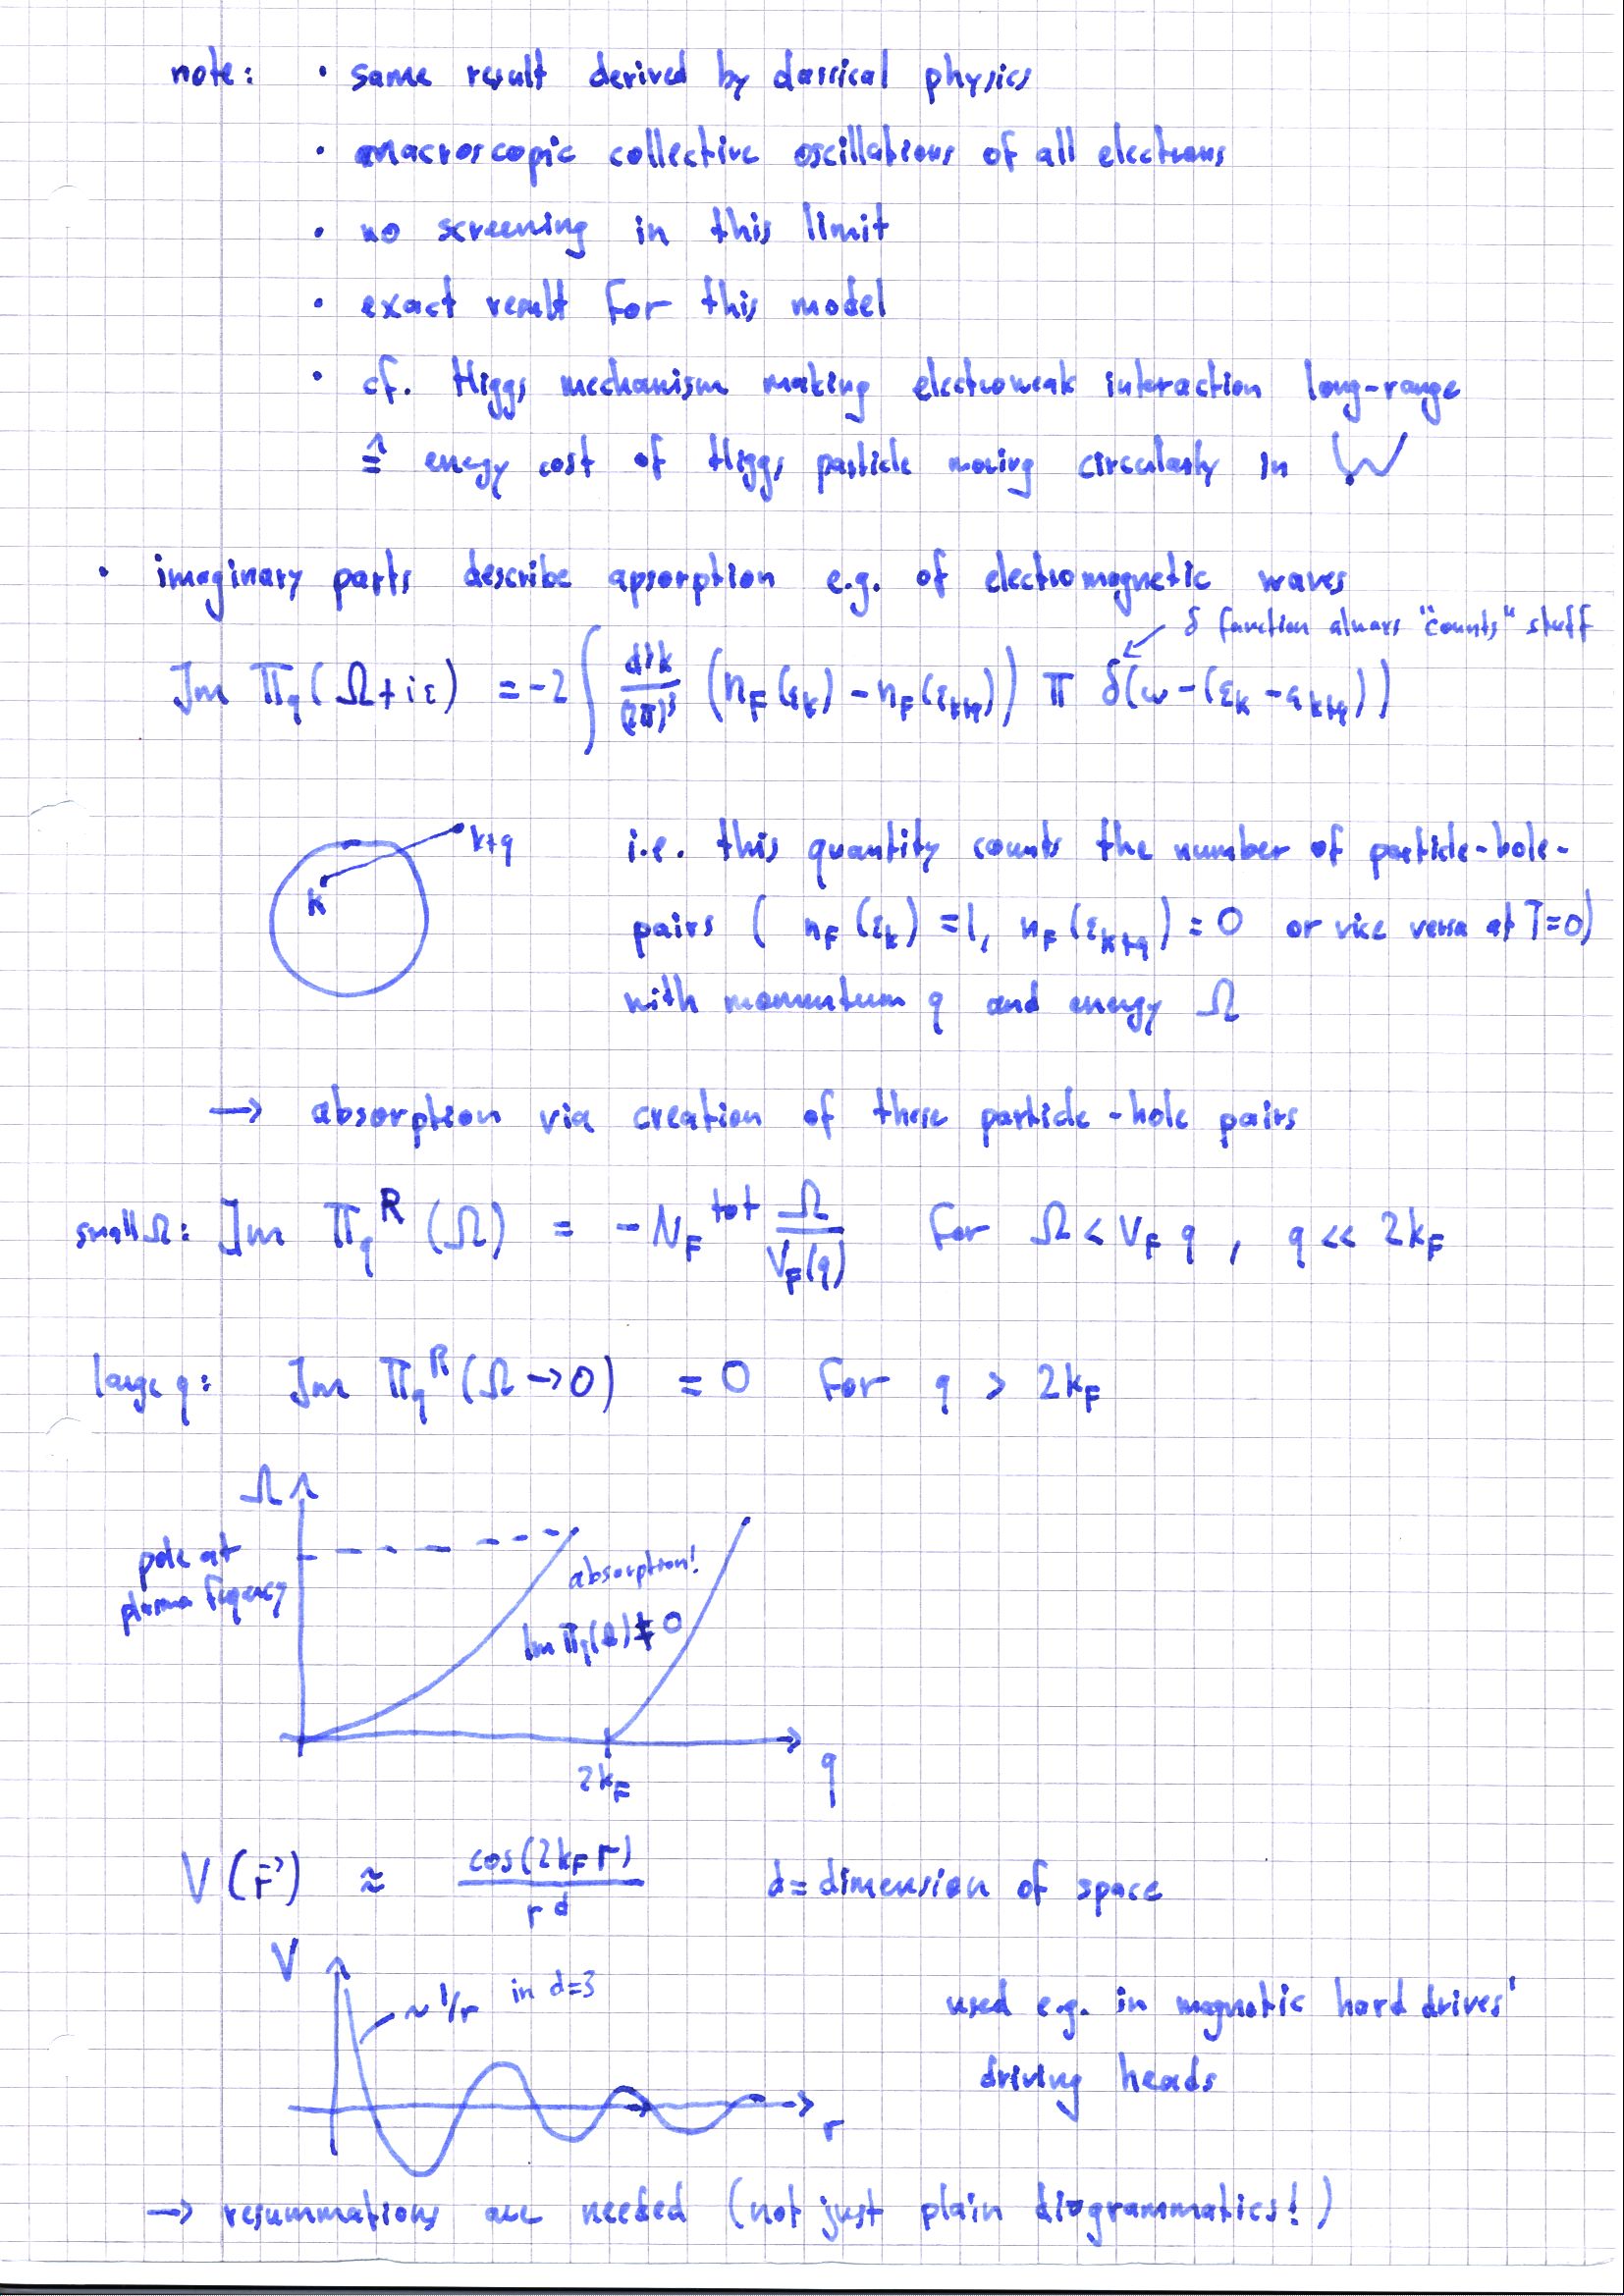 note: • same result derived by classical physics
• macroscopic collective oscillations of all electrons
• no screening in this limit
• exact result for this model
• cf. Higgs mechanism making electroweak interaction long-range
≙ energy cost of Higgs particle moving circularly in
• imaginary parts describe apsorption e.g. of electromagnetic waves
δ function always "counts" stuff
Im Π_q(Ω+iε) = -2 ∫ d³k/(2π)³ (n_F(ε_k) - n_F(ε_{k+q})) π δ(ω-(ε_k - ε_{k+q}))
k+q
k
i.e. this quantity counts the number of particle-hole-
pairs ( n_F(ε_k) = 1, n_F(ε_{k+q}) = 0 or vice versa at T=0)
with momentum q and energy Ω
→ absorption via creation of these particle-hole pairs
small Ω: Im Π_q^R (Ω) = - N_F^tot Ω/V_F(q) for Ω < V_F q , q << 2k_F
large q: Im Π_q^R (Ω→0) = 0 for q > 2k_F
Ω
pole at
plasma freqency
absorption!
Im Π_q(Ω) ≠ 0
2k_F
q
V(r⃗) ≈ cos(2k_F r)/r^d d = dimension of space
V
~ 1/r in d=3
r
used e.g. in magnetic hard drives'
driving heads
→ resummations are needed (not just plain diagrammatics!)